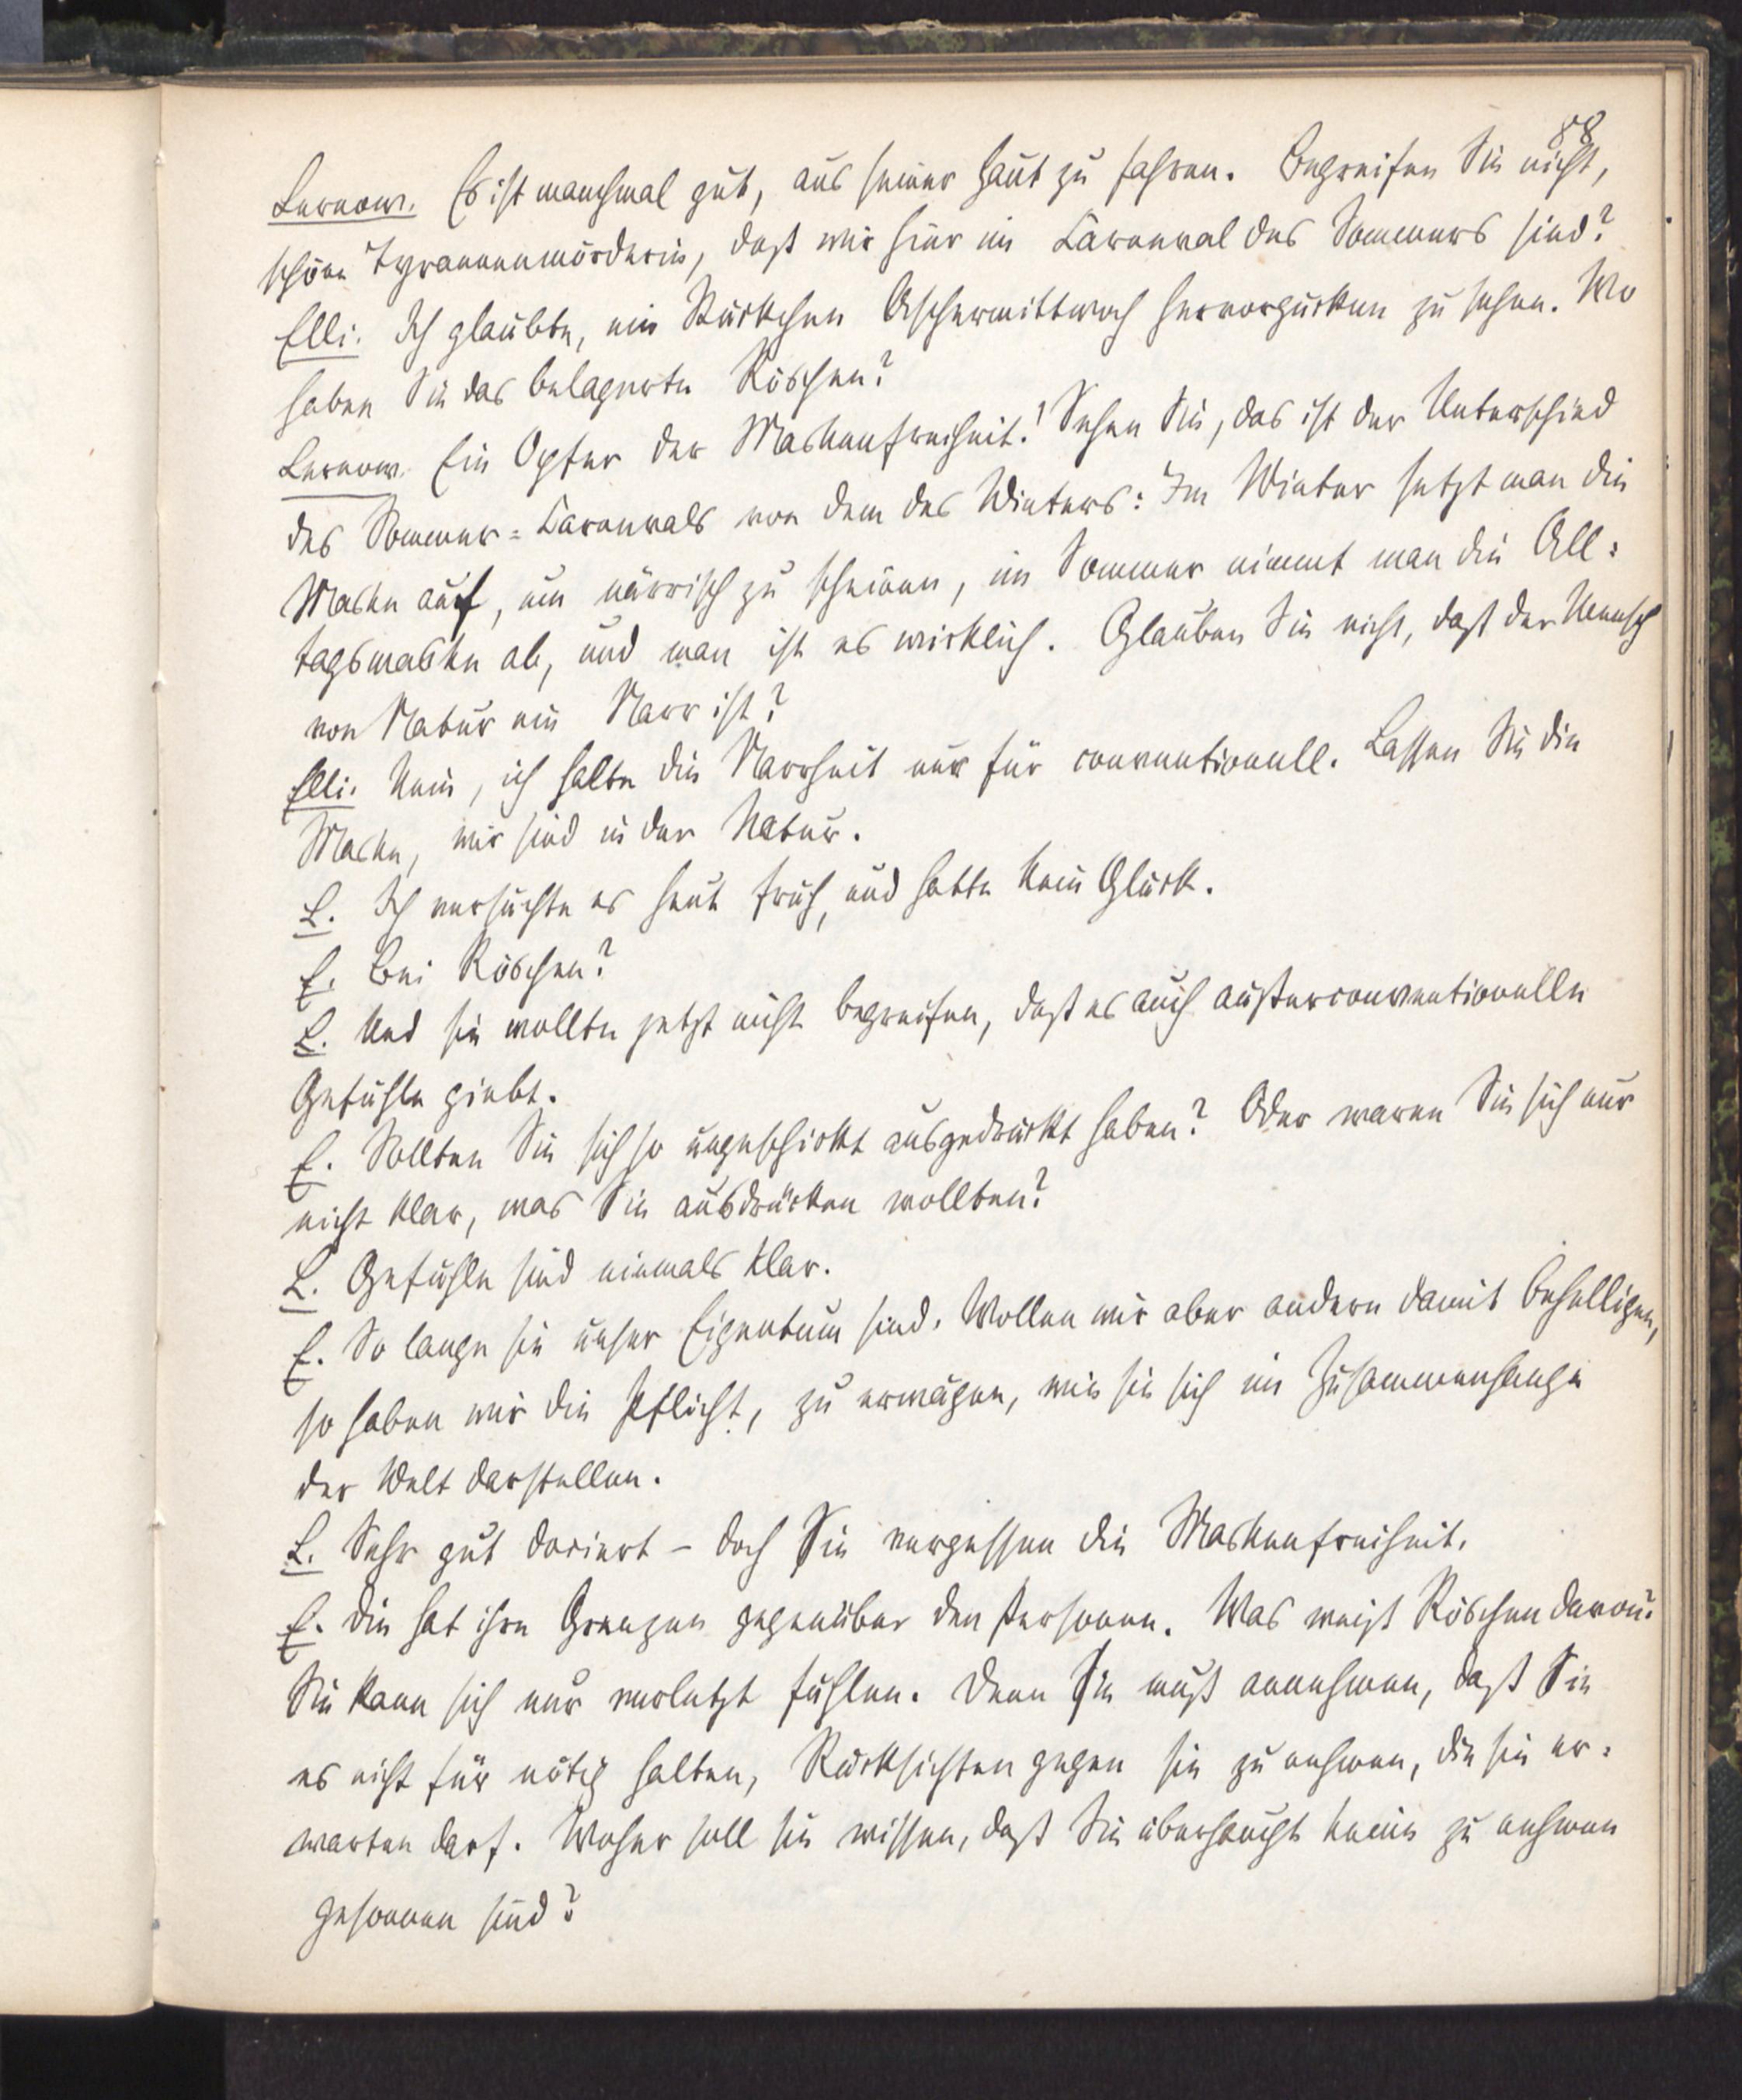 88
Lernow. Es ist manchmal gut, aus seiner Haut zu fahren. Begreifen Sie nicht,
schöne Tyrannenmörderin, daß wir hier im Carneval des Sommers sind?
Elli. Ich glaubte, ein Stückchen Aschermittwoch hervorgucken zu sehen. Wo
haben Sie das belagerte Röschen?
Lernow. Ein Opfer der Maskenfreiheit! Sehen Sie, das ist der Unterschied
des Sommer-Carnevals von dem des Winters: Im Winter setzt man die
Maske auf, um närrisch zu scheinen, im Sommer nimmt man die All-
tagsmaske ab, und man ist es wirklich. Glauben Sie nicht, daß der Mensch
von Natur ein Narr ist?
Elli. Nein, ich halte die Narrheit nur für conventionell. Lassen Sie die
Maske, wir sind in der Natur.
L. Ich versuchte es heut früh, und hatte kein Glück.
E. Bei Röschen?
L. Und sie wollte jetzt nicht begreifen, daß es auch außerconventionelle
Gefühle giebt.
E. Sollten Sie sich so ungeschickt ausgedrückt haben? Oder waren Sie sich nur
nicht klar, was Sie ausdrücken wollten?
L. Gefühle sind niemals klar.
E. So lange sie unser Eigentum sind. Wollen wir aber andern damit behelligen,
so haben wir die Pflicht, zu erwägen, wie sie sich im Zusammenhange
der Welt darstellen.
L. Sehr gut dociert – doch Sie vergessen die Maskenfreiheit.
E. Die hat ihre Grenzen gegenüber den Personen. Was weiß Röschen davon?
Sie kann sich nur verletzt fühlen. Denn Sie muß annehmen, daß Sie
es nicht für nötig halten, Rücksichten gegen sie zu nehmen, die sie er-
warten darf. Woher soll sie wissen, daß Sie überhaupt keine zu nehmen
gesonnen sind?